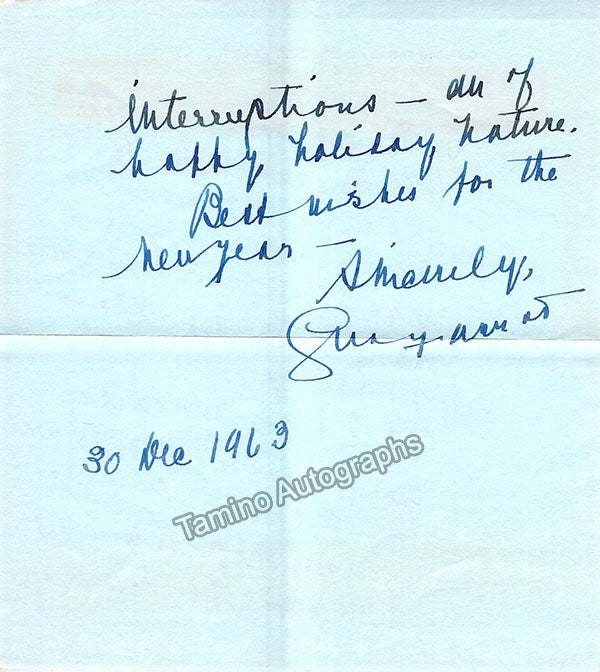 interruptions – all of
happy, holiday nature.
Best wishes for the
New year –
Sincerely,
30 Dec 1963
Tamino Autographs